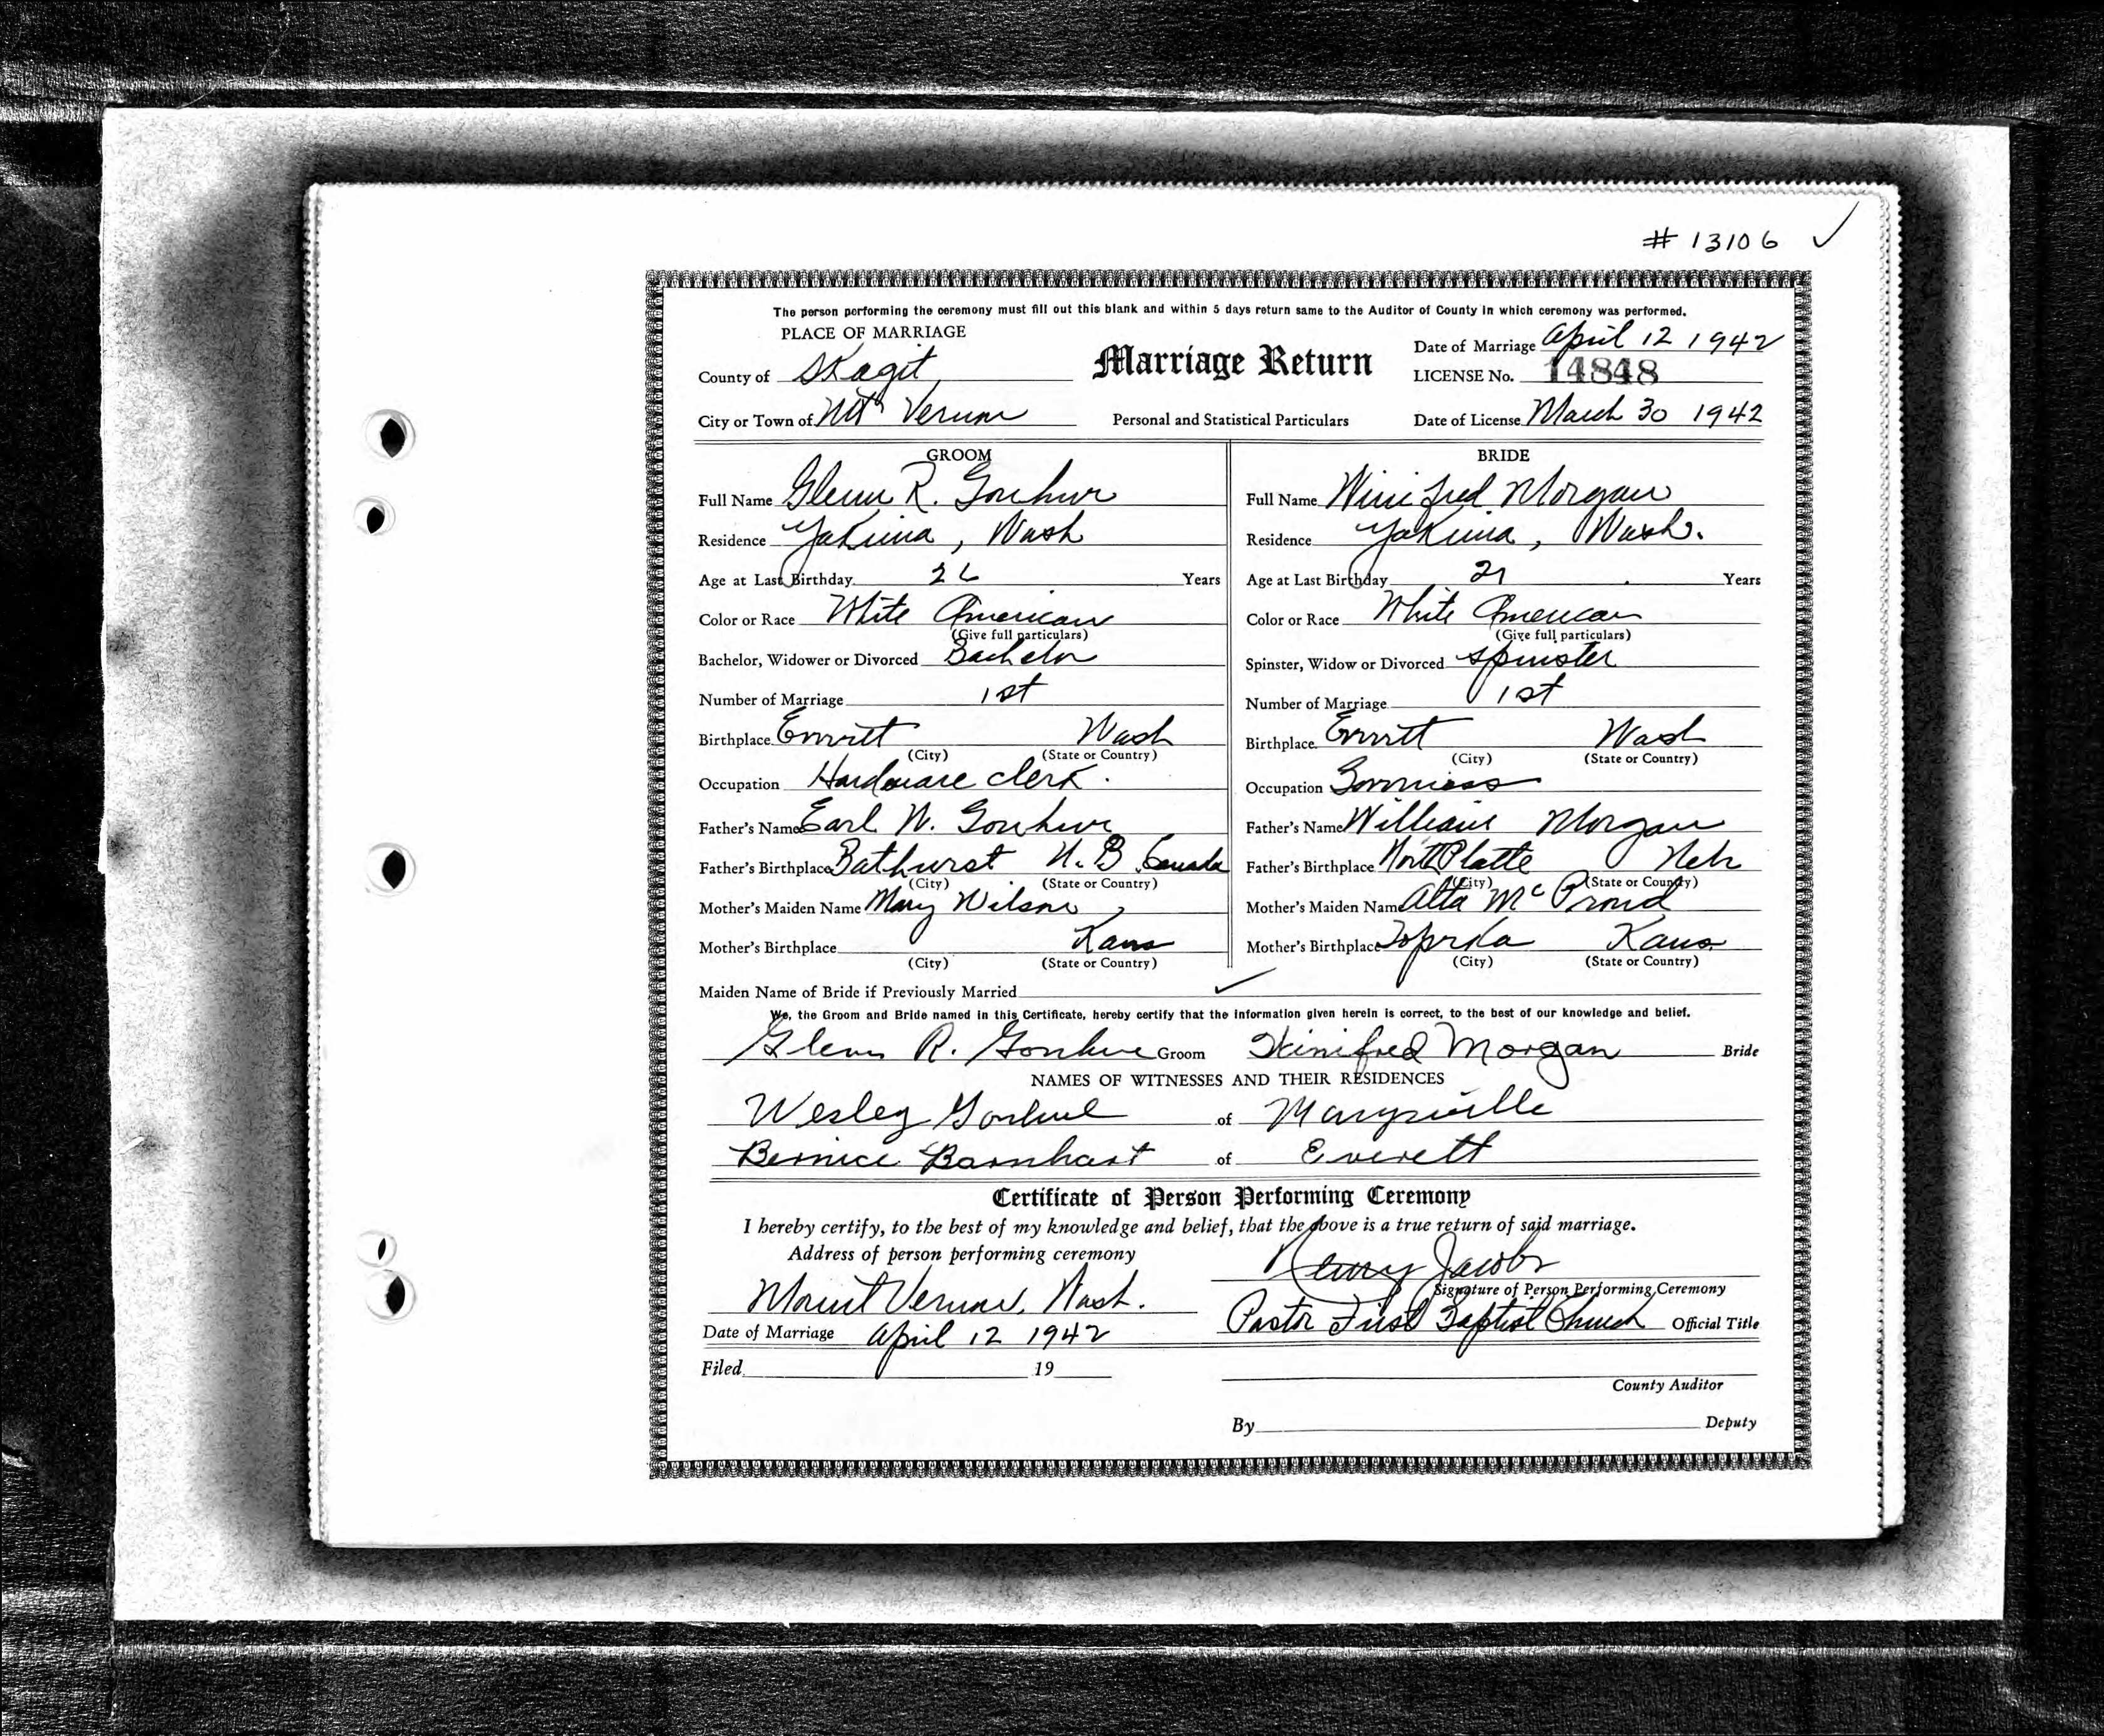 # 13106 ✓
The person performing the ceremony must fill out this blank and within 5 days return same to the Auditor of County in which ceremony was performed.
PLACE OF MARRIAGE
County of Skagit
City or Town of Mt Vernon
Marriage Return
Personal and Statistical Particulars
Date of Marriage April 12 1942
LICENSE No. 14848
Date of License March 30 1942
GROOM
Full Name Glenn R.
Residence Yakima, Wash
Age at Last Birthday 26 Years
Color or Race White American
(Give full particulars)
Bachelor, Widower or Divorced Bachelor
Number of Marriage 1st
Birthplace Everett Wash
(City) (State or Country)
Occupation Hardware clerk.
Father's Name Earl W.
Father's Birthplace Bathurst N. B. Canada
(City) (State or Country)
Mother's Maiden Name Mary Wilson
Mother's Birthplace Kans
(City) (State or Country)
BRIDE
Full Name Winifred Morgan
Residence Yakima, Wash.
Age at Last Birthday 21 Years
Color or Race White American
(Give full particulars)
Spinster, Widow or Divorced Spinster
Number of Marriage 1st
Birthplace Everett Wash
(City) (State or Country)
Occupation Governess
Father's Name William Morgan
Father's Birthplace North Platte Nebr
(City) (State or Country)
Mother's Maiden Name Alta McProud
Mother's Birthplace Topeka Kans.
(City) (State or Country)
Maiden Name of Bride if Previously Married ✓
We, the Groom and Bride named in this Certificate, hereby certify that the information given herein is correct, to the best of our knowledge and belief.
Glenn R. Groom Winifred Morgan Bride
NAMES OF WITNESSES AND THEIR RESIDENCES
Wesley of Marysville
Bernice Barnhart of Everett
Certificate of Person Performing Ceremony
I hereby certify, to the best of my knowledge and belief, that the above is a true return of said marriage.
Address of person performing ceremony
Mount Vernon, Wash.
Date of Marriage April 12 1942
Filed 19
Henry Jacobs
Signature of Person Performing Ceremony
Pastor First Baptist Church Official Title
County Auditor
By Deputy